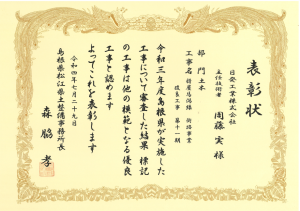 表彰状
日発工業株式会社
主任技術者
周藤 実 様
部門 土木
工事名
改良工事 第十一期
令和三年度島根県が実施した
工事について審査した結果 標記
の工事は他の模範となる優良
工事と認めます
よってこれを表彰します
令和四年七月二十九日
島根県松江県土整備事務所長
森脇 孝